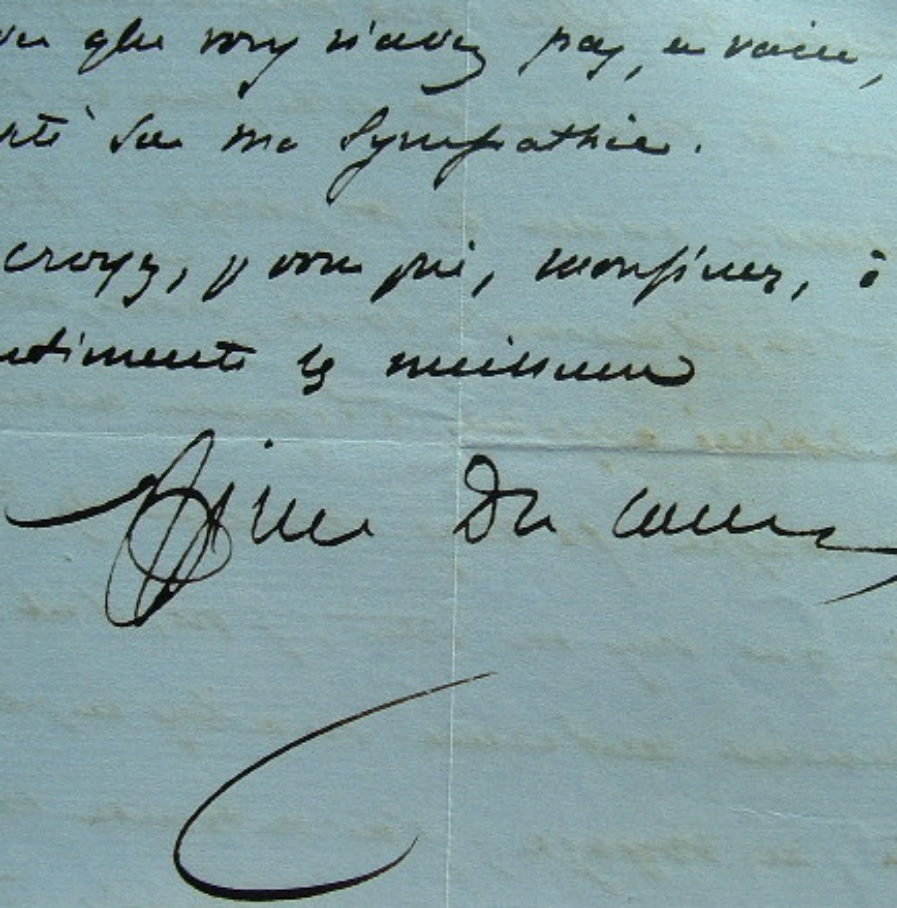 que vous n'avez pas, en vain,
té sur ma sympathie.
croyez, je vous prie, monsieur, à
ntiments les meilleurs
Du Camp